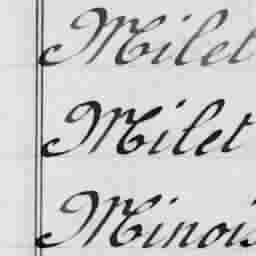 Milet
Milet
Minois